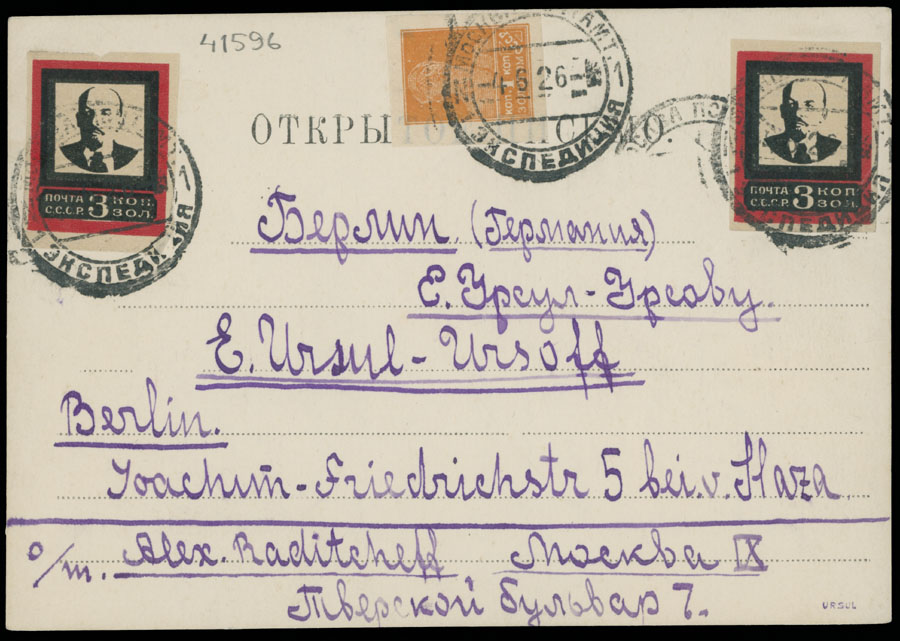 41596
1 КОП. ЗОЛ.
4 8 26
ЭКСПЕДИЦИЯ
ПОЧТА С.С.С.Р. 3 КОП. ЗОЛ.
ЭКСПЕДИЦИЯ
ПОЧТА С.С.С.Р. 3 КОП. ЗОЛ.
ОТКРЫТОЕ ПИСЬМО
Берлин (Германия)
Е. Урсул-Урсову.
E. Ursul-Ursoff
Berlin.
Joachim-Friedrichstr 5 bei. v. Haza
о/т. Alex. Raditcheff Москва IX
Тверской бульвар 7.
URSUL